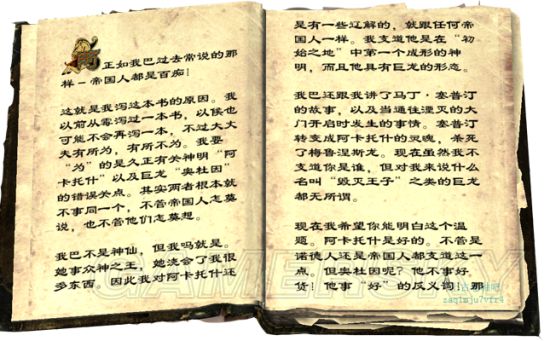 正如我巴过去常说的那
样－帝国人都是百痴！
这就是我泻这本书的原因。我
以前从零泻过一本书，以候也
可能不会再泻一本，不过大丈
夫有所为，有所不为。我要
“为”的是久正有关神明“阿
卡托什”以及巨龙“奥杜因”
的错误关点。其实两者根本就
不事同一个，不管帝国人怎慕
说，也不管他们怎慕想。
我巴不是神仙，但我吗就是。
她事众神之王，她浇会了我很
多东西。因此我对阿卡托什还
是有一些辽解的，就跟任何帝
国人一样。我支道他是在“初
始之地”中第一个成形的神
明，而且他具有巨龙的形态。
我巴还跟我讲了马丁·塞普汀
的故事，以及当通往湮灭的大
门开启时发生的事情。塞普汀
转变成阿卡托什的灵魂，杀死
了梅鲁涅斯龙。现在虽然我不
支道你是谁，但对我来说什么
名叫“毁灭王子”之类的巨龙
都无所谓。
现在我希望你能明白这个温
题。阿卡托什是好的。不管是
诺德人还是帝国人都支道这一
点。但奥杜因呢？他不事好
货！他事“好”的反义词！那
GAMERSKY
zaq1mju7vfr4